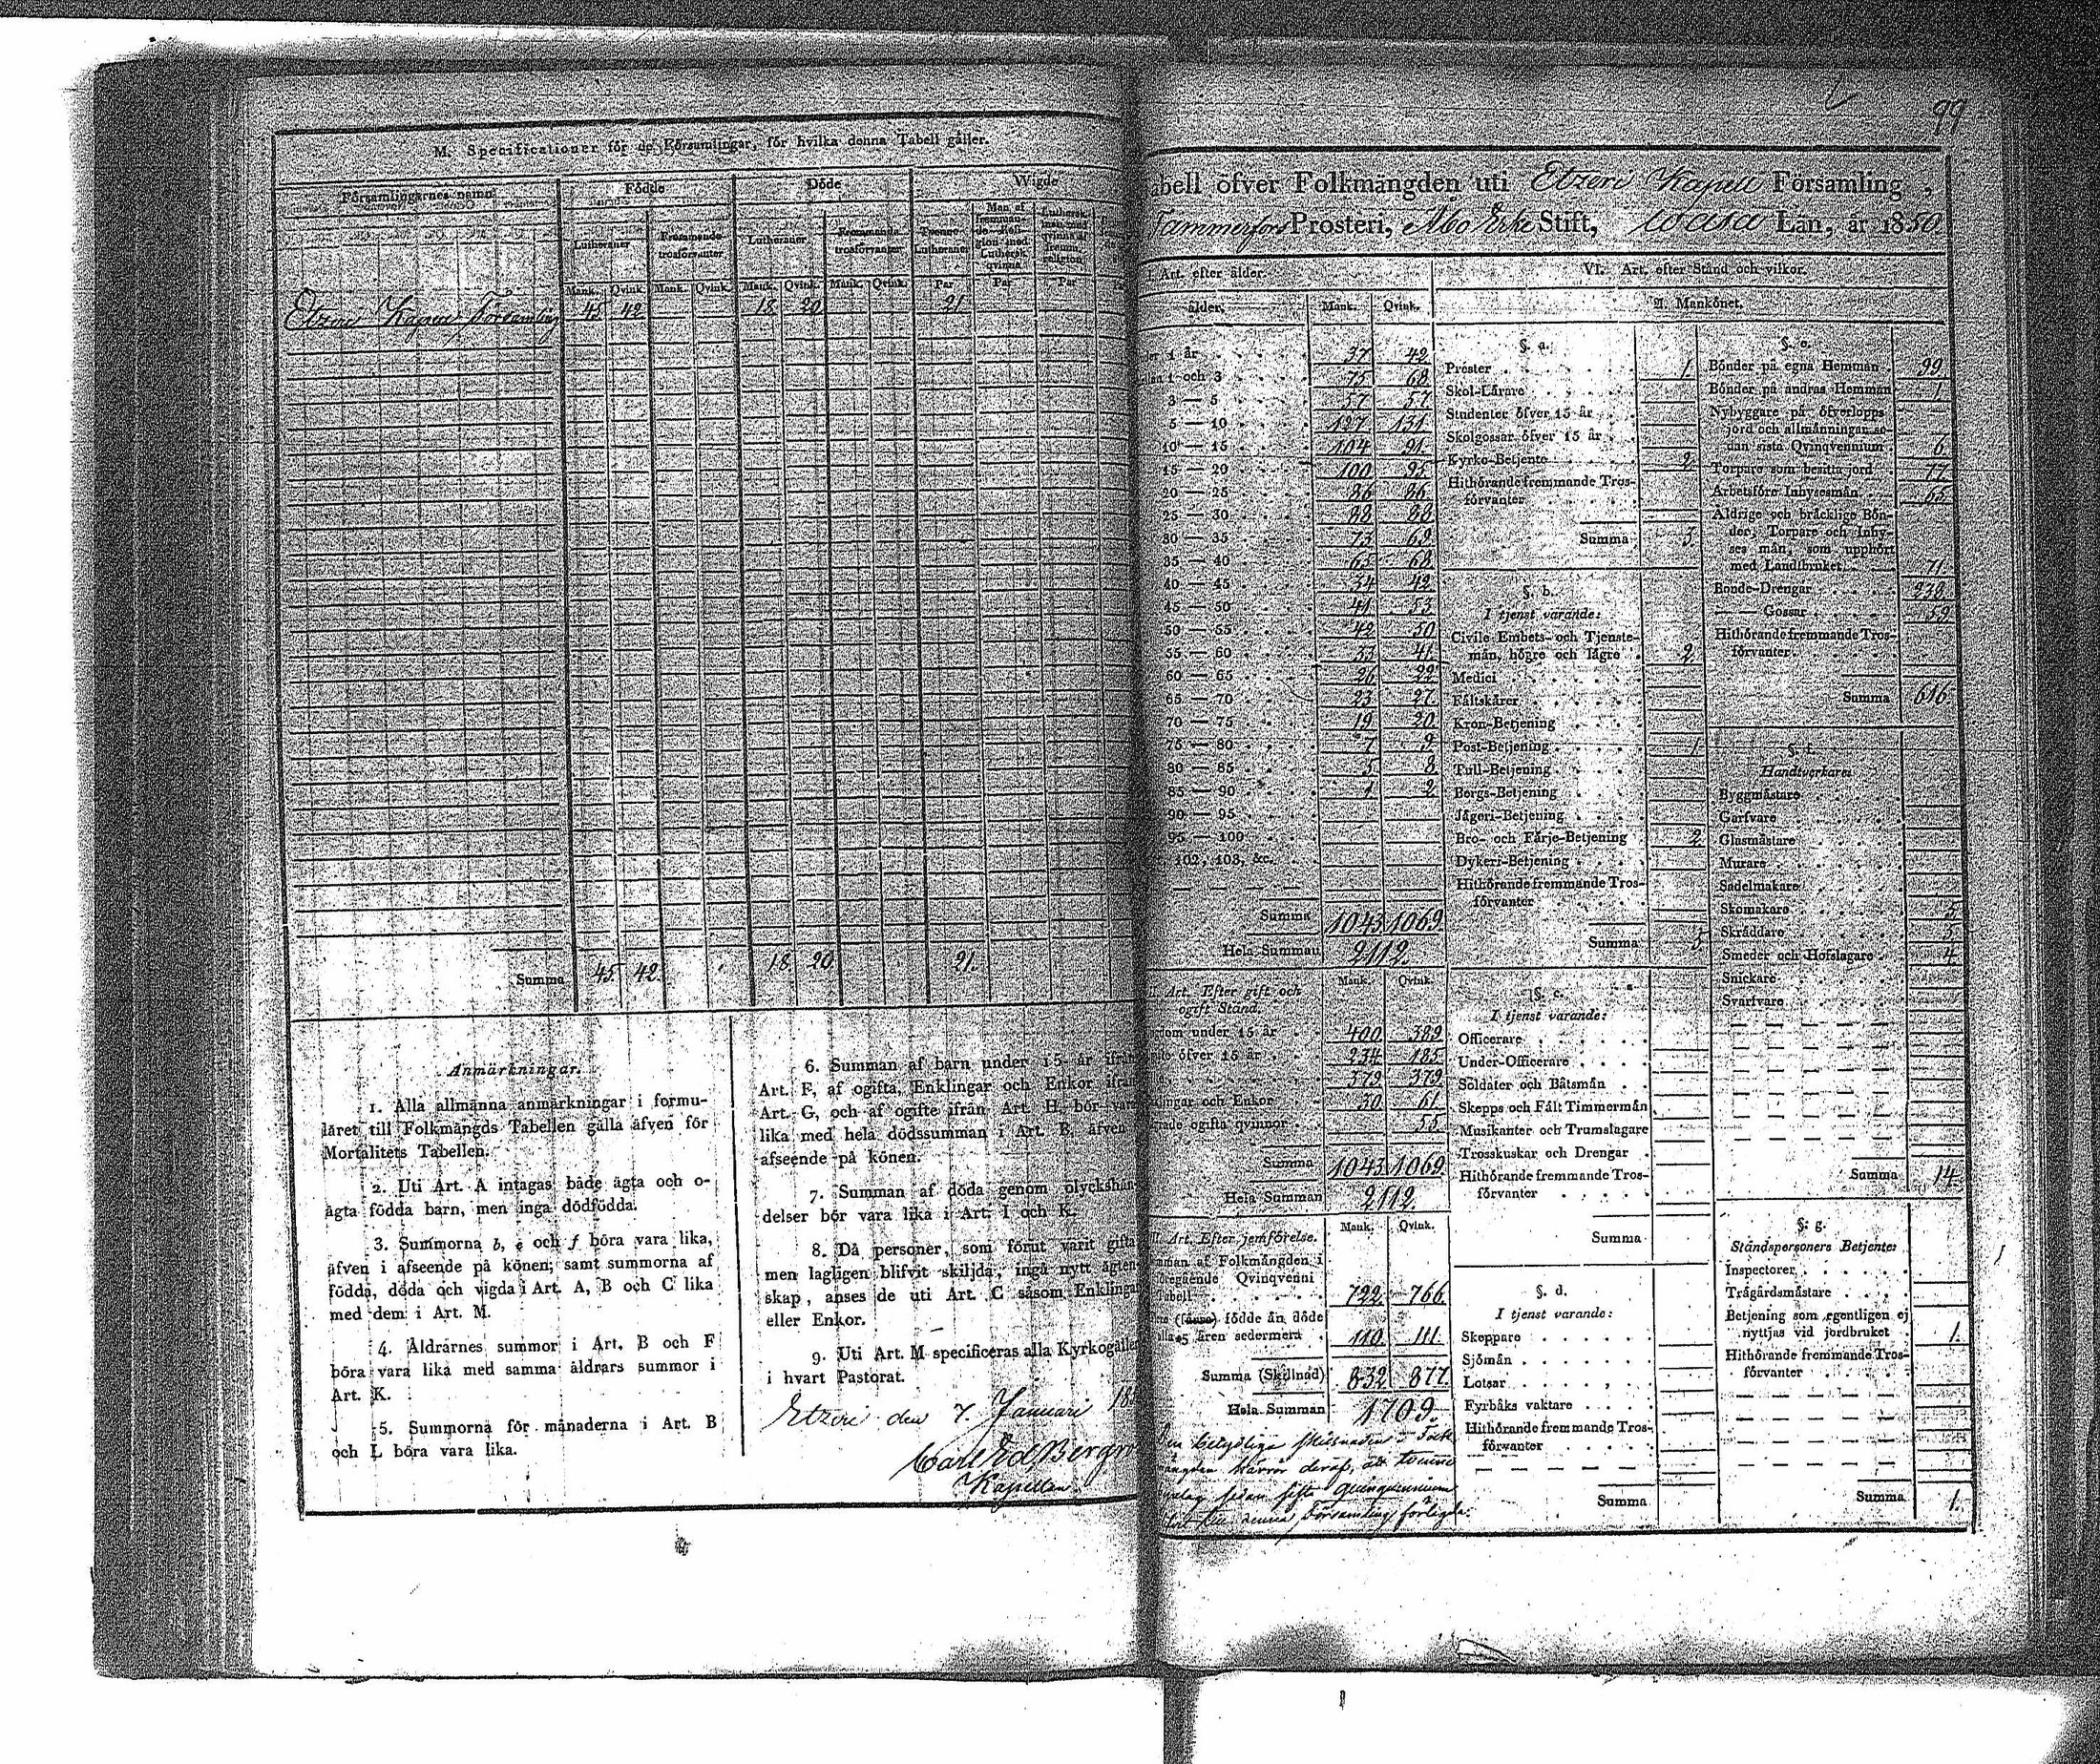 M. Specificationer för de Församlingar, för hvilka denna Tabell gäller.
Församlingarnes namn
Födde
Döde
Wigde
Lutheraner
Fremmande trosförvanter
Lutheraner
Fremmande trosförvanter
Lutheraner
Man af fremmande Religion med Luthersk qvinna
Mank. Qvink. Mank. Qvink. Mank. Qvink. Mank. Qvink. Par Par Par
Etzeri Kapell Församling 45 42 18 20 21
Summa 45 42 18 20 21.
Anmärkningar.
1. Alla allmänna anmärkningar i formu-
läret till Folkmängds Tabellen gälla äfven för
Mortalitets Tabellen.
2. Uti Art. A intagas både ägta och o-
ägta födda barn, men inga dödfödda.
3. Summorna b, e och f böra vara lika,
äfven i afseende på könen; samt summorna af
födda, döda och vigda i Art. A, B och C lika
med dem i Art. M.
4. Åldrarnes summor i Art. B och F
böra vara lika med samma åldrars summor i
Art. K.
5. Summorna för månaderna i Art. B
och L böra vara lika.
6. Summan af barn under 15 år ifrån
Art. F, af ogifta, Enklingar och Enkor ifrån
Art. G, och af ogifte ifrån Art. H, bör vara
lika med hela dödssumman i Art. B, äfven i
afseende på könen.
7. Summan af döda genom olyckshän-
delser bör vara lika i Art. I och K.
8. Då personer, som förut varit gifta
men lagligen blifvit skiljda, ingå nytt ägten-
skap, anses de uti Art. C såsom Enklingar
eller Enkor.
9. Uti Art. M specificeras alla Kyrkogäller
i hvart Pastorat.
Etzeri den 7. Januari 18
Carl Ed. Bergro
Kapellan
99
abell öfver Folkmängden uti Etzeri Kapell Församling,
Tammerfors Prosteri, Åbo Erke Stift, Wasa Län, år 1850.
Art. efter ålder.
ålder. Mank. Qvink.
er 1 år 37 42
1 och 3 75 68
3 — 5 57 57
5 — 10 127 131
10 — 15 104 91
15 — 20 100 95
20 — 25 86 86
25 — 30 88 88
30 — 35 73 69
35 — 40 65 68
40 — 45 34 42
45 — 50 41 53
50 — 55 42 50
55 — 60 33 41
60 — 65 26 22
65 — 70 23 27
70 — 75 19 20
75 — 80 7 9
80 — 85 5 8
85 — 90 1 2
90 — 95
95 — 100
102, 103, &c.
Summa 1043 1069
Hela Summan 2112.
Art. Efter gift och
ogift Stånd. Mank. Qvink.
dom under 15 år 400 389
öfver 15 år 234 185
379 379
lingar och Enkor 30 61
rade ogifta qvinnor 55
Summa 1043 1069
Hela Summan 2112.
Art. Efter jemförelse. Mank. Qvink.
mman af Folkmängden i
öregående Qvinqvenni
Tabell 722 766
födde än döde
5 åren sedermera 110 111
Summa (Skillnad) 832 877
Hela Summan 1709.
VI. Art. efter Stånd och vilkor.
A. Mankönet.
§. a.
Prester 1
Skol-Lärare
Studenter öfver 15 år
Skolgossar öfver 15 år
Kyrko-Betjente 2
Hithörande fremmande Tros-
förvanter
Summa 3
§. b.
I tjenst varande:
Civile Embets- och Tjenste-
män, högre och lägre 2
Medici
Fältskärer
Kron-Betjening
Post-Betjening 1
Tull-Betjening
Bergs-Betjening
Jägeri-Betjening
Bro- och Färje-Betjening 2
Dykeri-Betjening
Hithörande fremmande Tros-
förvanter
Summa 5
§. c.
I tjenst varande:
Officerare
Under-Officerare
Soldater och Båtsmän
Skepps och Fält Timmermän
Musikanter och Trumslagare
Trosskuskar och Drengar
Hithörande fremmande Tros-
förvanter
Summa
§. d.
I tjenst varande:
Skeppare
Sjömän
Lotsar
Fyrbåks vaktare
Hithörande fremmande Tros-
förvanter
Summa
§. e.
Bönder på egna Hemman 99
Bönder på andras Hemman 1
Nybyggare på öfverlopps
jord och allmänningar se-
dan sista Qvinqvennium 6
Torpare som besitta jord 77
Arbetsföre Inhysesmän 65
Åldrige och bräcklige Bön-
der, Torpare och Inhy-
ses män, som upphört
med Landtbruket 71
Bonde-Drengar 238
— — Gossar 59
Hithörande fremmande Tros-
förvanter
Summa 616
§. f.
Handtverkare:
Byggmästare
Garfvare
Glasmästare
Murare
Sadelmakare
Skomakare 5
Skräddare 5
Smeder och Hofslagare 4
Snickare
Svarfvare
Summa 14.
§. g.
Ståndspersoners Betjente:
Inspectorer
Trägårdsmästare
Betjening som egentligen ej
nyttjas vid jordbruket 1.
Hithörande fremmande Tros-
förvanter
Summa 1.